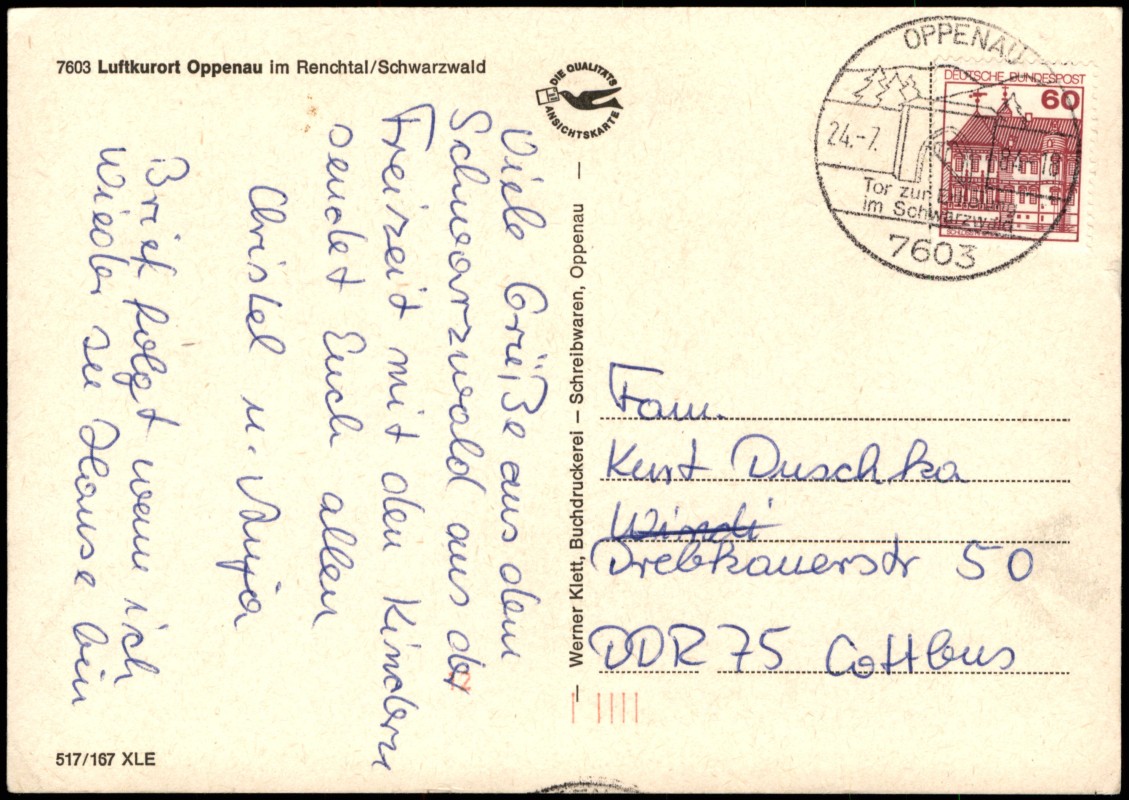 7603 Luftkurort Oppenau im Renchtal/Schwarzwald
DIE QUALITÄTS
ANSICHTSKARTE
OPPENAU
DEUTSCHE BUNDESPOST
60
24.-7.
84-18
Tor zur
im Schwarzwald
7603
Viele Grüße aus dem
Schwarzwald aus der
Freizeit mit den Kindern
sendet Euch allen
Christel u. Anja
Brief folgt wenn ich
wieder zu Hause bin
Werner Klett, Buchdruckerei – Schreibwaren, Oppenau
Fam.
Kurt Duschka
Drebkauerstr 50
DDR 75 Cottbus
517/167 XLE